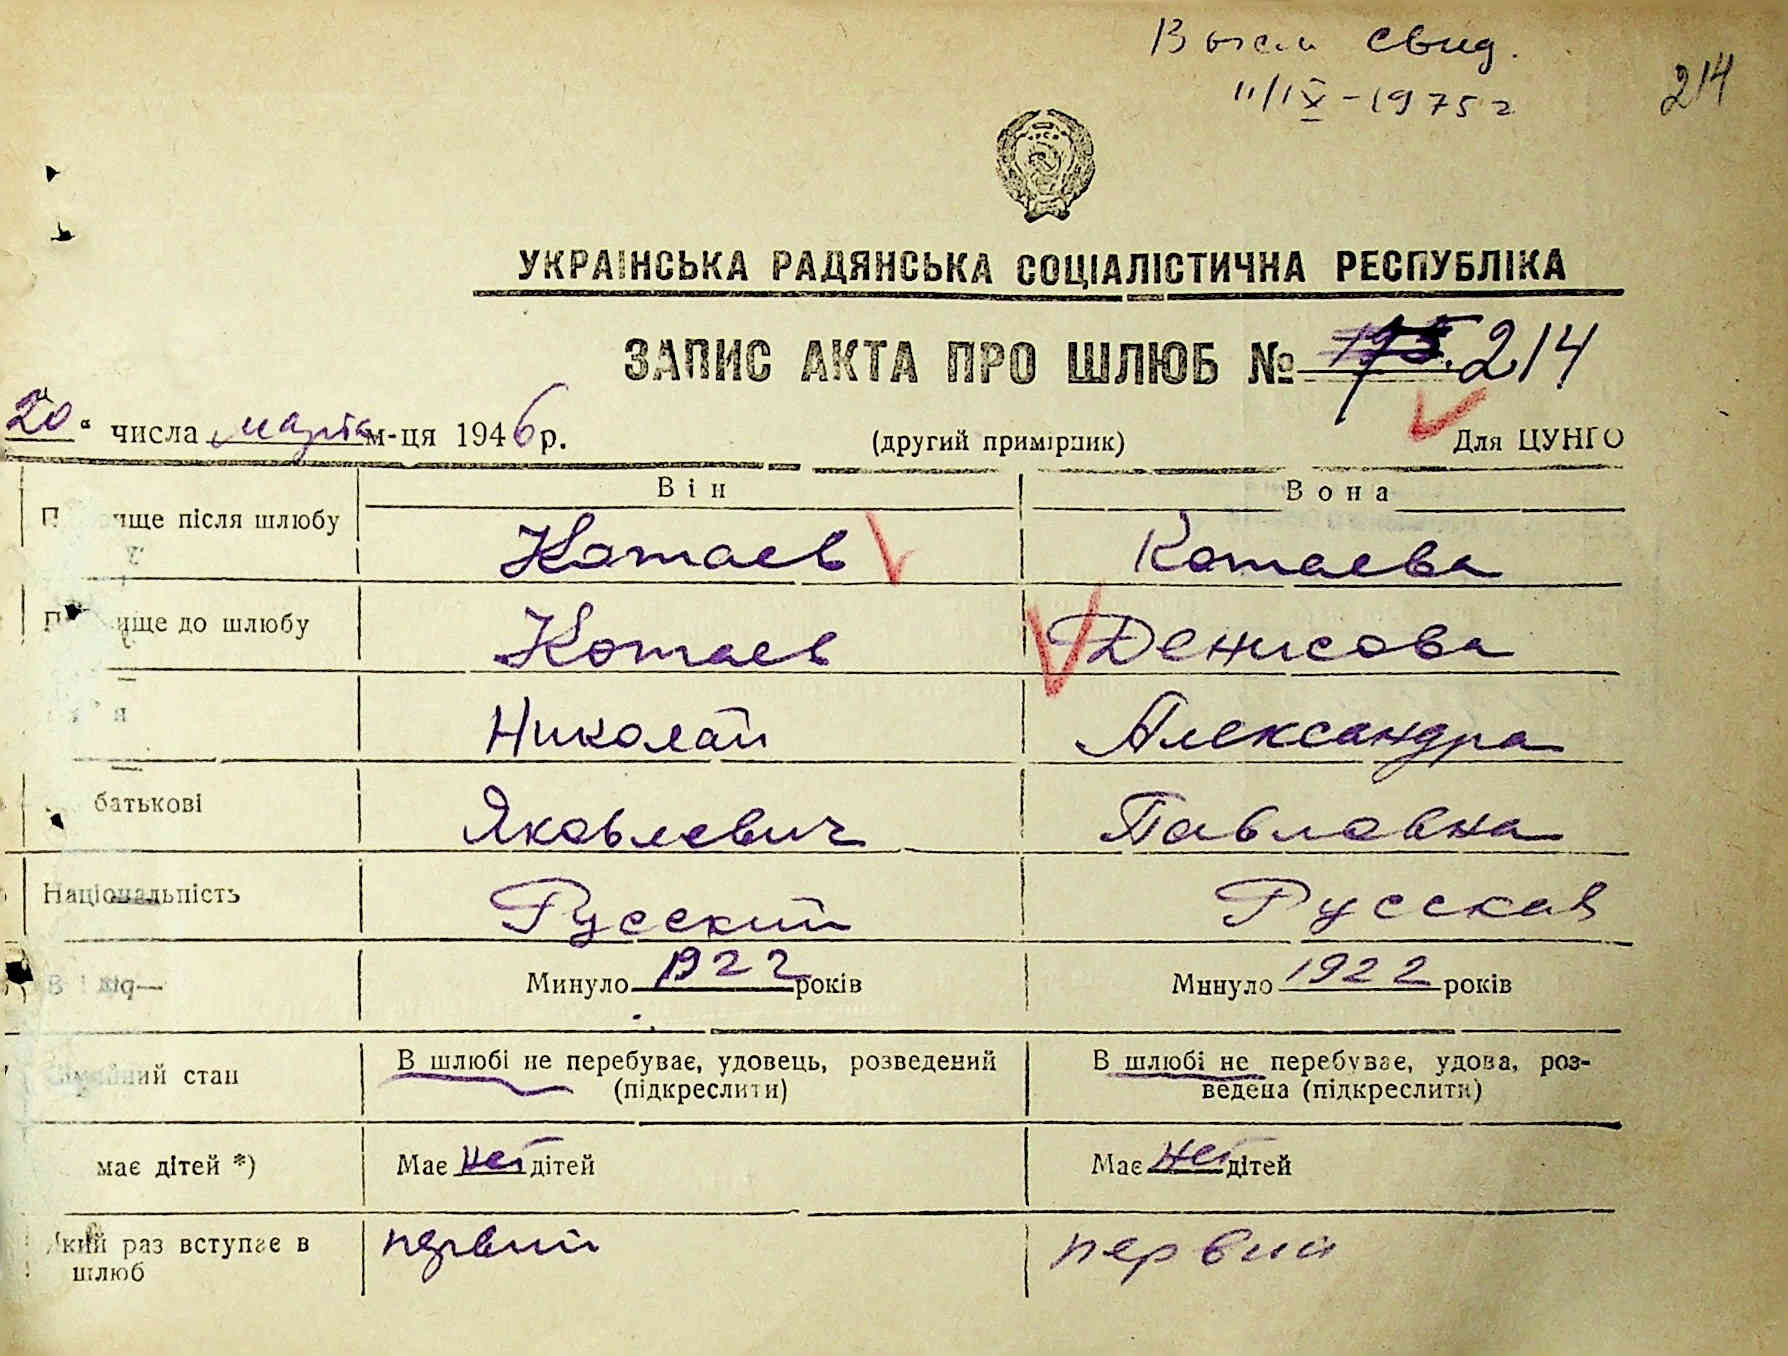 свид.
11/IX-1975г
214
УКРАЇНСЬКА РАДЯНСЬКА СОЦІАЛІСТИЧНА РЕСПУБЛІКА
ЗАПИС АКТА ПРО ШЛЮБ № 175. 214
20 " числа марта м-ця 1946 р.
(другий примірник)
Для ЦУНГО
Він
Вона
Прізвище після шлюбу
Котаев
Котаева
Прізвище до шлюбу
Котаев
Денисова
Николай
Александра
батькові
Яковлевич
Павловна
Національність
Русский
Русская
Минуло 1922 років
Минуло 1922 років
стан
В шлюбі не перебуває, удовець, розведений
(підкреслити)
В шлюбі не перебуває, удова, роз-
ведена (підкреслити)
має дітей *)
Має нет дітей
Має нет дітей
Який раз вступає в
шлюб
первый
первый